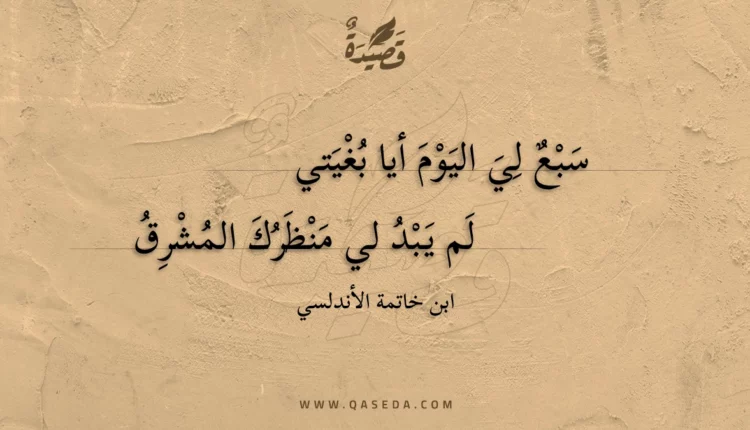 قَصِيدَةٌ
سَبْعٌ لِيَ اليَوْمَ أيا بُغْيَتي
لَم يَبْدُ لي مَنْظَرُكَ المُشْرِقُ
ابن خاتمة الأندلسي
WWW.QASEDA.COM